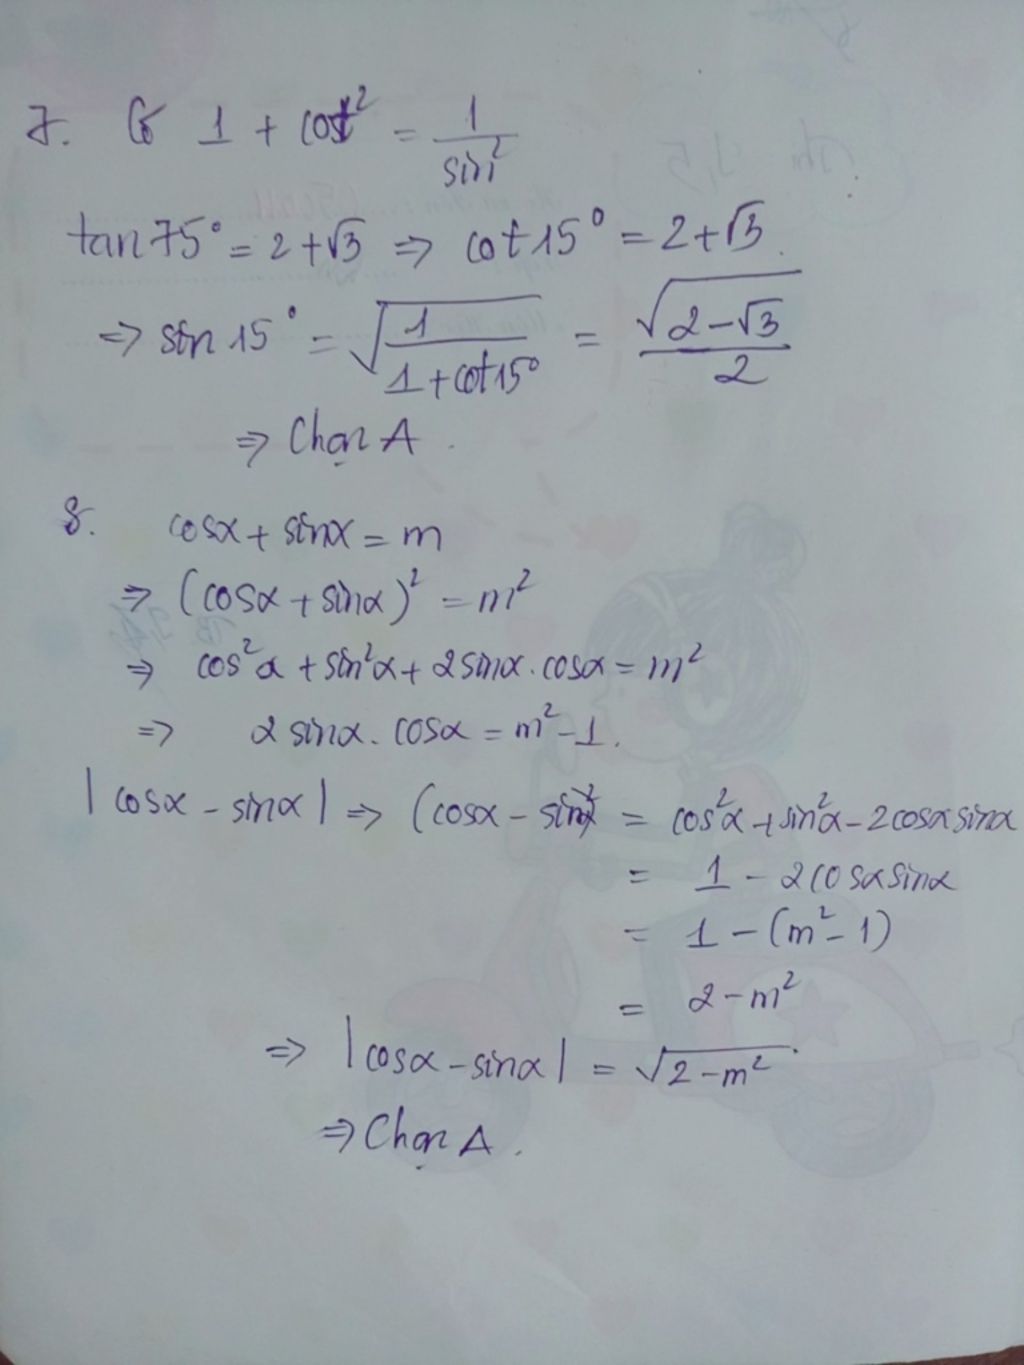 7. Có 1 + cot² = 1/sin²
tan 75° = 2 + √3 ⇒ cot 15° = 2 + √3.
⇒ sin 15° = √(1/(1 + cot 15°)) = √(2 - √3)/2
⇒ Chọn A.
8. cosα + sinα = m
⇒ (cosα + sinα)² = m²
⇒ cos²α + sin²α + 2 sinα . cosα = m²
⇒ 2 sinα . cosα = m² - 1.
|cosα - sinα| ⇒ (cosα - sinα)² = cos²α + sin²α - 2cosα sinα
= 1 - 2cosα sinα
= 1 - (m² - 1)
= 2 - m²
⇒ |cosα - sinα| = √(2 - m²).
⇒ Chọn A.